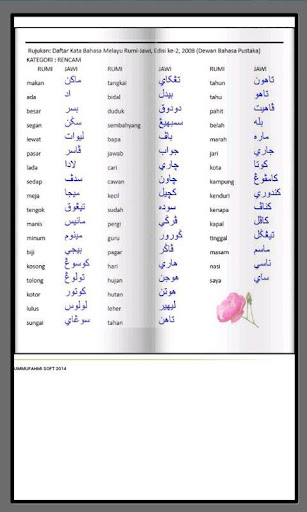 Rujukan: Daftar Kata Bahasa Melayu Rumi-Jawi, Edisi ke-2, 2008 (Dewan Bahasa Pustaka)
KATEGORI : RENCAM
RUMI JAWI RUMI JAWI RUMI JAWI
makan ماکن tangkai تڠکاي tahun تاهون
ada اد bidal بيدل tahu تاهو
besar بسر duduk دودوق pahit ڤاهيت
segan سݢن sembahyang سمبهيڠ belah بله
lewat ليوات bapa باڤ marah ماره
pasar ڤاسر jawab جواب jari جاري
lada لادا cari چاري kota کوتا
sedap سدڤ cawan چاون kampung کامڤوڠ
meja ميجا kecil کچيل kenduri کندوري
tengok تيڠوق sudah سوده kenapa کناڤ
manis مانيس pergi ڤرݢي kapal کاڤل
minum مينوم guru ݢورو tinggal تيڠݢل
biji بيجي pagar ڤاݢر masam ماسم
kosong کوسوڠ hari هاري nasi ناسي
tolong تولوڠ hujan هوجن saya ساي
kotor کوتور hutan هوتن
lulus لولوس leher ليهير
sungai سوڠاي tahan تاهن
UMMUFAHMI SOFT 2014